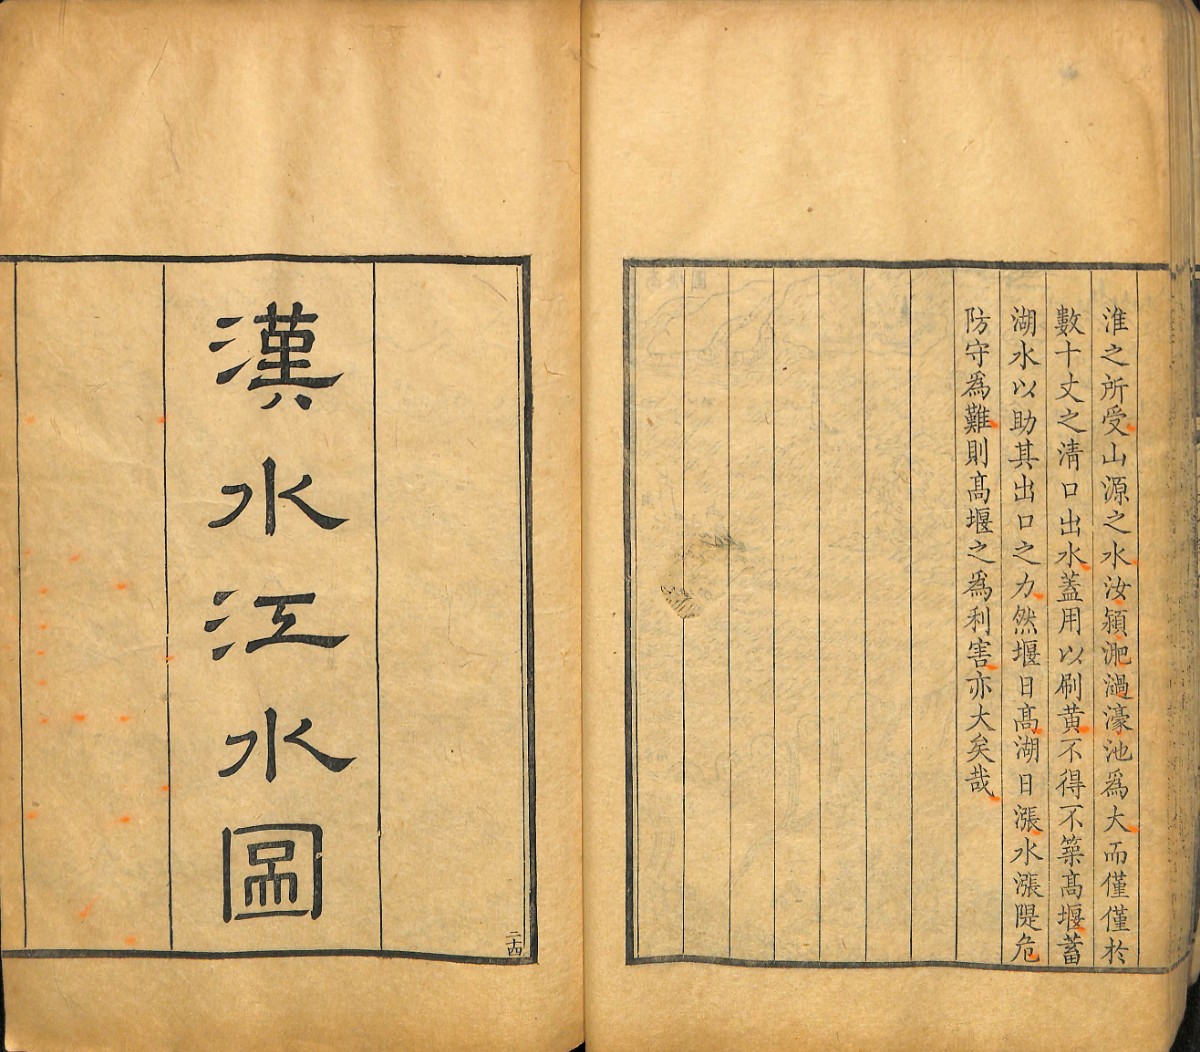 淮之所受山源之水汝潁淝濄濠池為大而僅僅於
數十丈之清口出水蓋用以刷黃不得不築高堰蓄
湖水以助其出口之力然堰日高湖日漲水漲隄危
防守為難則高堰之為利害亦大矣哉
漢水江水圖
二十四